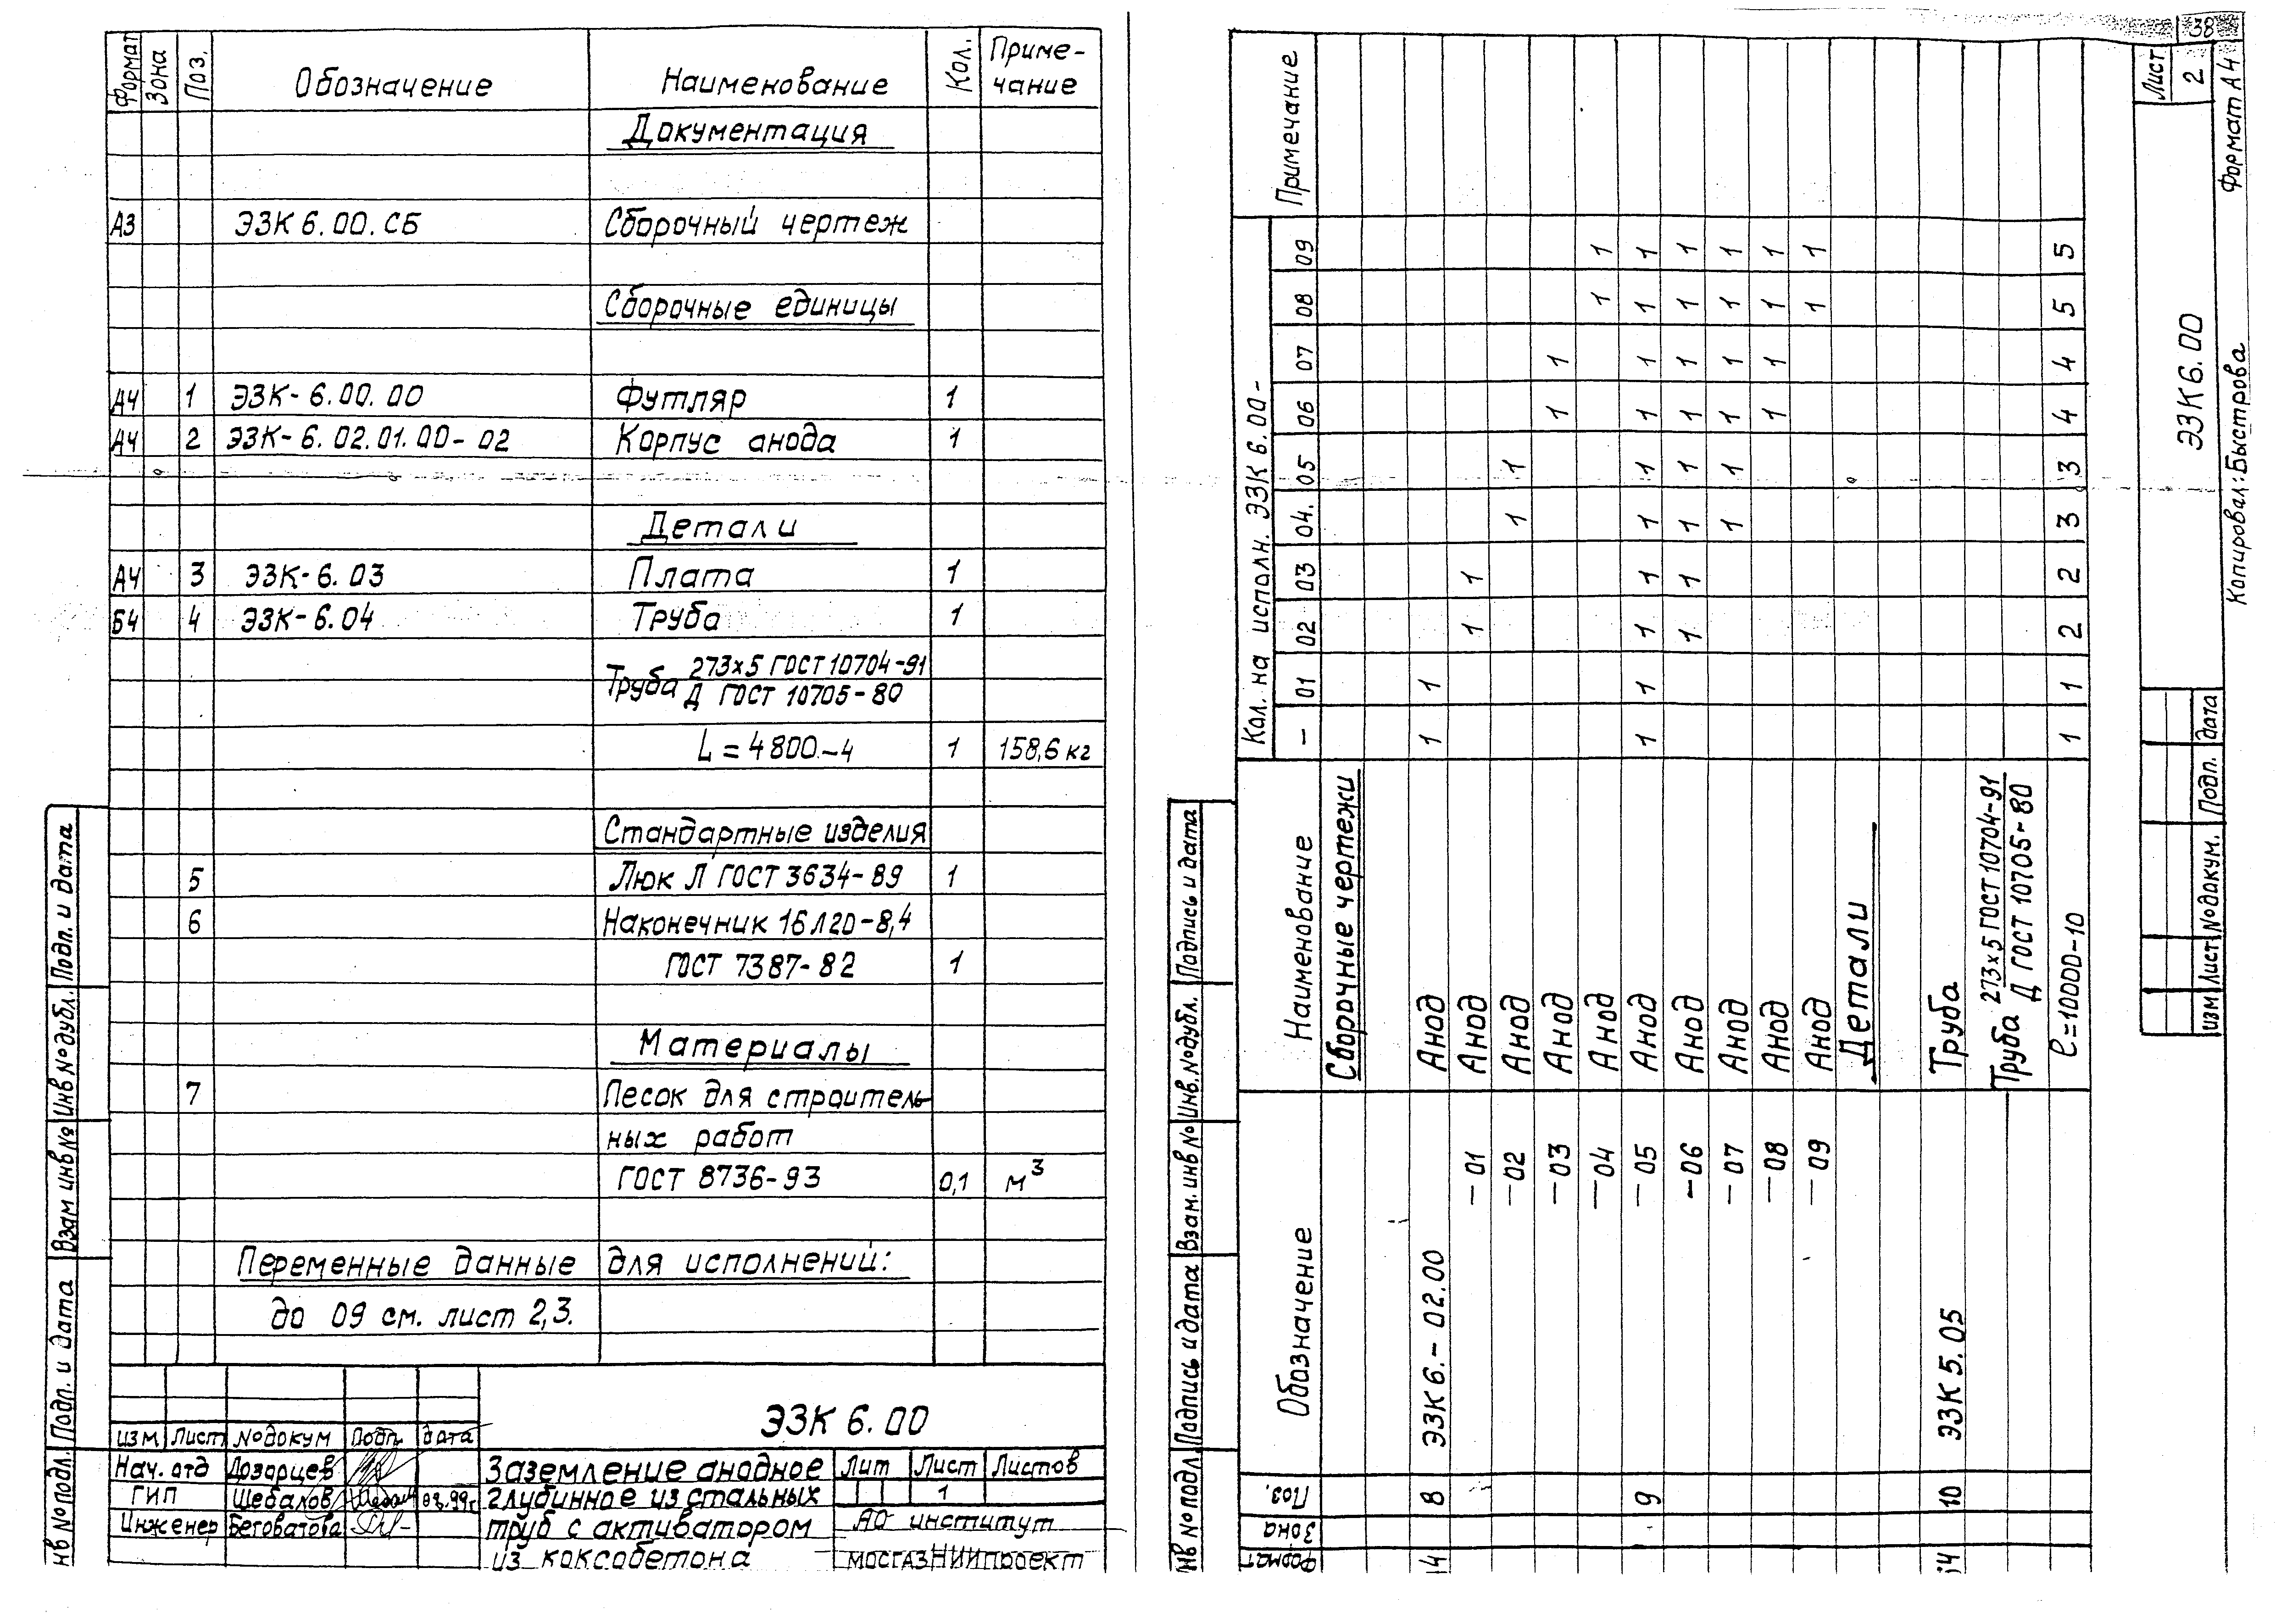 Формат Зона Поз. Обозначение Наименование Кол. Приме-
чание
Документация
А3 ЭЗК 6.00.СБ Сборочный чертеж
Сборочные единицы
А4 1 ЭЗК-6.00.00 Футляр 1
А4 2 ЭЗК-6.02.01.00-02 Корпус анода 1
Детали
А4 3 ЭЗК-6.03 Плата 1
Б4 4 ЭЗК-6.04 Труба 1
Труба 273х5 ГОСТ 10704-91
Д ГОСТ 10705-80
L=4800-4 1 158,6 кг
Стандартные изделия
5 Люк Л ГОСТ 3634-89 1
6 Наконечник 16Л20-8,4
ГОСТ 7387-82 1
Материалы
7 Песок для строитель-
ных работ
ГОСТ 8736-93 0,1 м³
Переменные данные для исполнений:
до 09 см. лист 2,3.
нв № подл. Подп. и дата Взам инв № Инв № дубл. Подп. и дата
ЭЗК 6.00
изм Лист № докум Подп. дата
Нач. отд Дозорцев
ГИП Шебалов 03.99г
Инженер Беговатова
Заземление анодное
глубинное из стальных
труб с активатором
из коксобетона
Лит Лист Листов
1
АО институт
МОСГАЗНИИПРОЕКТ
38
Формат Зона Поз. Обозначение Наименование Кол. на исполн. ЭЗК 6.00- Примечание
– 01 02 03 04. 05 06 07 08 09
Сборочные чертежи
8 ЭЗК 6.-02.00 Анод 1 1
–01 Анод 1 1
–02 Анод 1 1
–03 Анод 1 1
–04 Анод 1 1
9 –05 Анод 1 1 1 1 1 1 1 1 1 1
–06 Анод 1 1 1 1 1 1 1 1
–07 Анод 1 1 1 1 1 1
–08 Анод 1 1 1 1
–09 Анод 1 1
Детали
10 ЭЗК 5.05 Труба
Труба 273х5 ГОСТ 10704-91
Д ГОСТ 10705-80
ℓ=10000-10 1 1 2 2 3 3 4 4 5 5
нв № подл. Подпись и дата Взам. инв № Инв. № дубл. Подпись и дата
изм Лист № докум. Подп. дата
ЭЗК 6.00
Лист
2
Копировал: Быстрова Формат А4